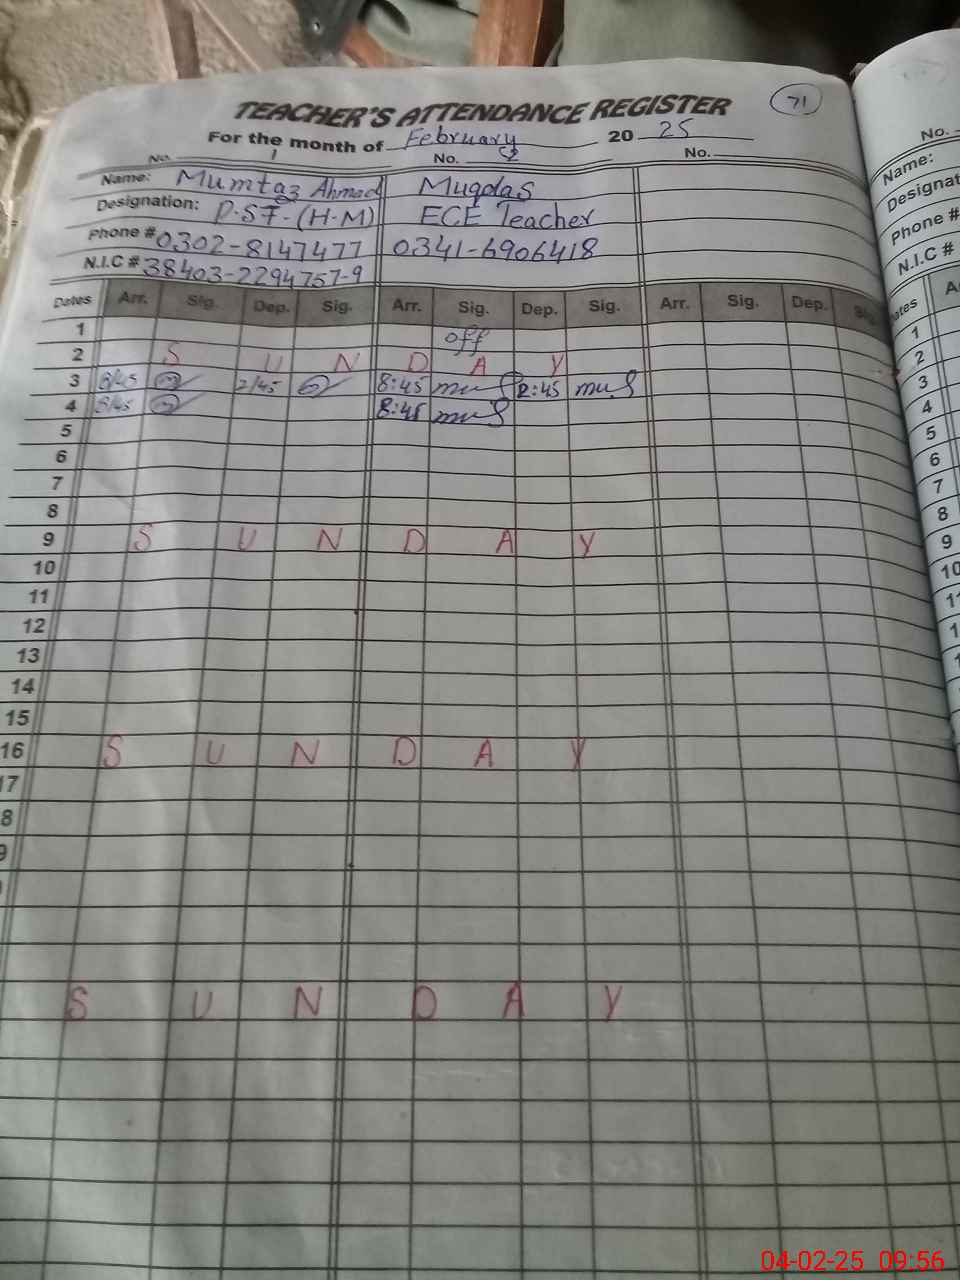 71
TEACHER'S ATTENDANCE REGISTER
For the month of February 2025
No. 1 No. 52 No.
Name: Mumtaz Ahmad Muqdas
Designation: P.S.T-(H-M) ECE Teacher
Phone # 0302-8147477 0341-6906418
N.I.C # 38403-2294757-9
Dates Arr. Sig. Dep. Sig. Arr. Sig. Dep. Sig. Arr. Sig. Dep. Sig.
1 off
2 S U N D A Y
3 8/45 2/45 8:45 2:45
4 8/45 8:45
5
6
7
8
9 S U N D A Y
10
11
12
13
14
15
16 S U N D A Y
17
8
9
S U N D A Y
No.
Name:
Designat
Phone #
N.I.C #
ates A
1
2
3
4
5
6
7
8
9
10
1
1
04-02-25 09:56